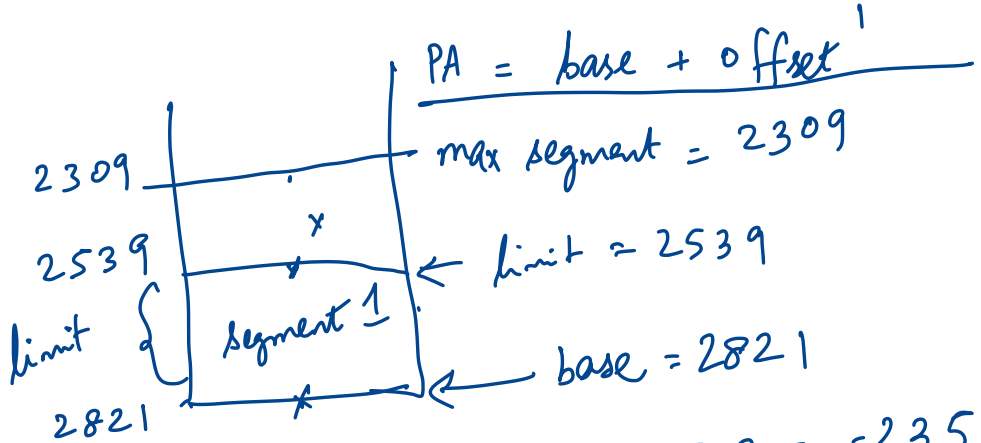 PA = base + offset
2309 max segment = 2309
2539 limit = 2539
limit segment 1
base = 2821
2821